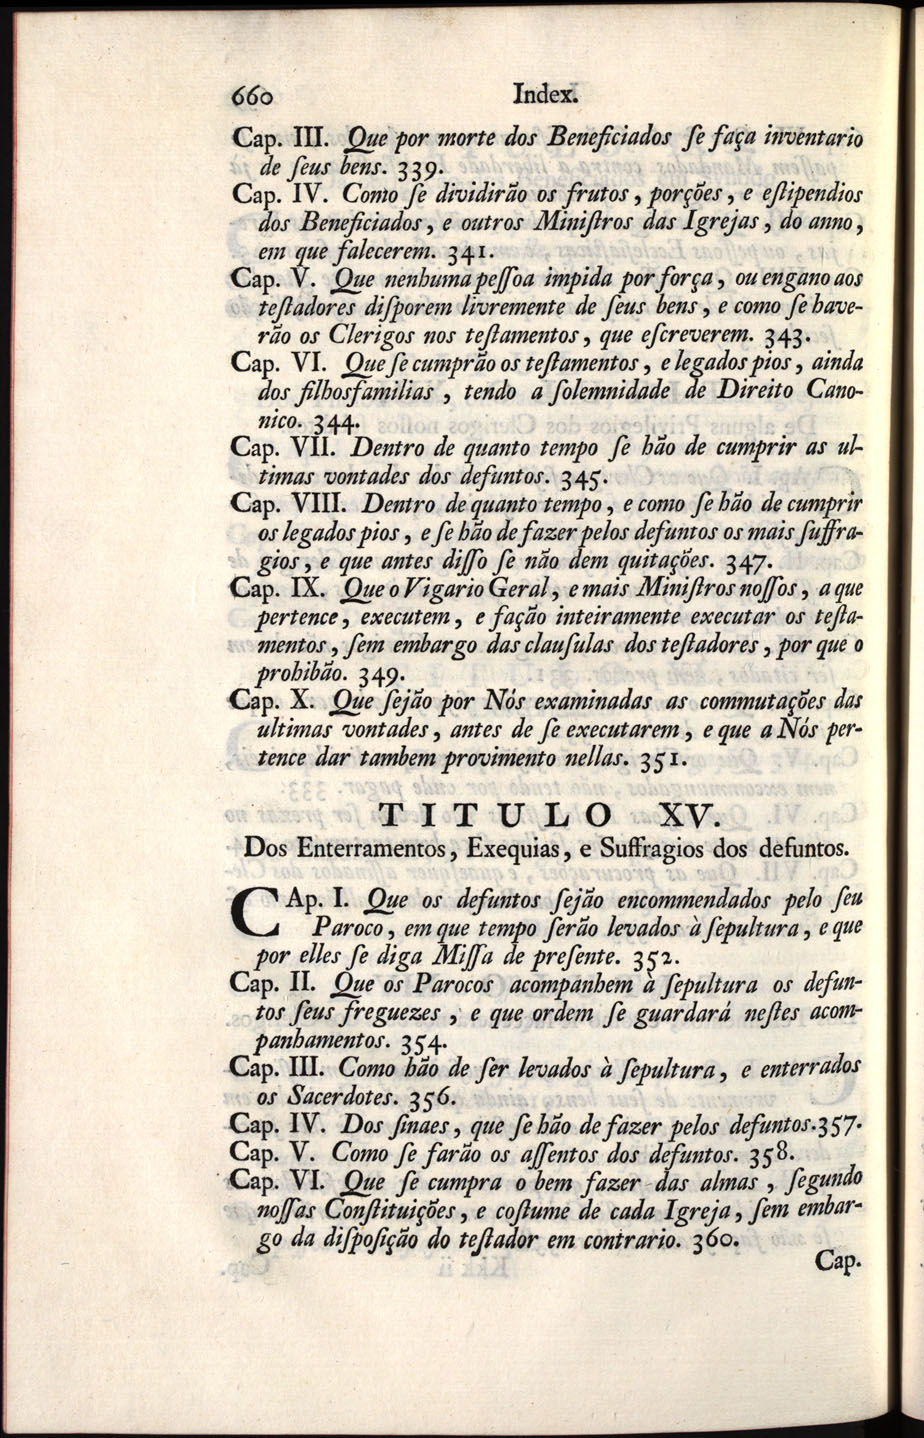 660 Index.
Cap. III. Que por morte dos Beneficiados ſe faça inventario
de ſeus bens. 339.
Cap. IV. Como ſe dividirão os frutos, porções, e eſtipendios
dos Beneficiados, e outros Miniſtros das Igrejas, do anno,
em que falecerem. 341.
Cap. V. Que nenhuma peſſoa impida por força, ou engano aos
teſtadores diſporem livremente de ſeus bens, e como ſe have-
rão os Clerigos nos teſtamentos, que eſcreverem. 343.
Cap. VI. Que ſe cumprão os teſtamentos, e legados pios, ainda
dos filhosfamilias, tendo a ſolemnidade de Direito Cano-
nico. 344.
Cap. VII. Dentro de quanto tempo ſe hão de cumprir as ul-
timas vontades dos defuntos. 345.
Cap. VIII. Dentro de quanto tempo, e como ſe hão de cumprir
os legados pios, e ſe hão de fazer pelos defuntos os mais ſuffra-
gios, e que antes diſſo ſe não dem quitações. 347.
Cap. IX. Que o Vigario Geral, e mais Miniſtros noſſos, a que
pertence, executem, e fação inteiramente executar os teſta-
mentos, ſem embargo das clauſulas dos teſtadores, por que o
prohibão. 349.
Cap. X. Que ſejão por Nós examinadas as commutações das
ultimas vontades, antes de ſe executarem, e que a Nós per-
tence dar tambem provimento nellas. 351.
TITULO XV.
Dos Enterramentos, Exequias, e Suffragios dos defuntos.
CAp. I. Que os defuntos ſejão encommendados pelo ſeu
Paroco, em que tempo ſerão levados à ſepultura, e que
por elles ſe diga Miſſa de preſente. 352.
Cap. II. Que os Parocos acompanhem à ſepultura os defun-
tos ſeus freguezes, e que ordem ſe guardará neſtes acom-
panhamentos. 354.
Cap. III. Como hão de ſer levados à ſepultura, e enterrados
os Sacerdotes. 356.
Cap. IV. Dos ſinaes, que ſe hão de fazer pelos defuntos. 357.
Cap. V. Como ſe farão os aſſentos dos defuntos. 358.
Cap. VI. Que ſe cumpra o bem fazer das almas, ſegundo
noſſas Conſtituições, e coſtume de cada Igreja, ſem embar-
go da diſpoſição do teſtador em contrario. 360.
Cap.